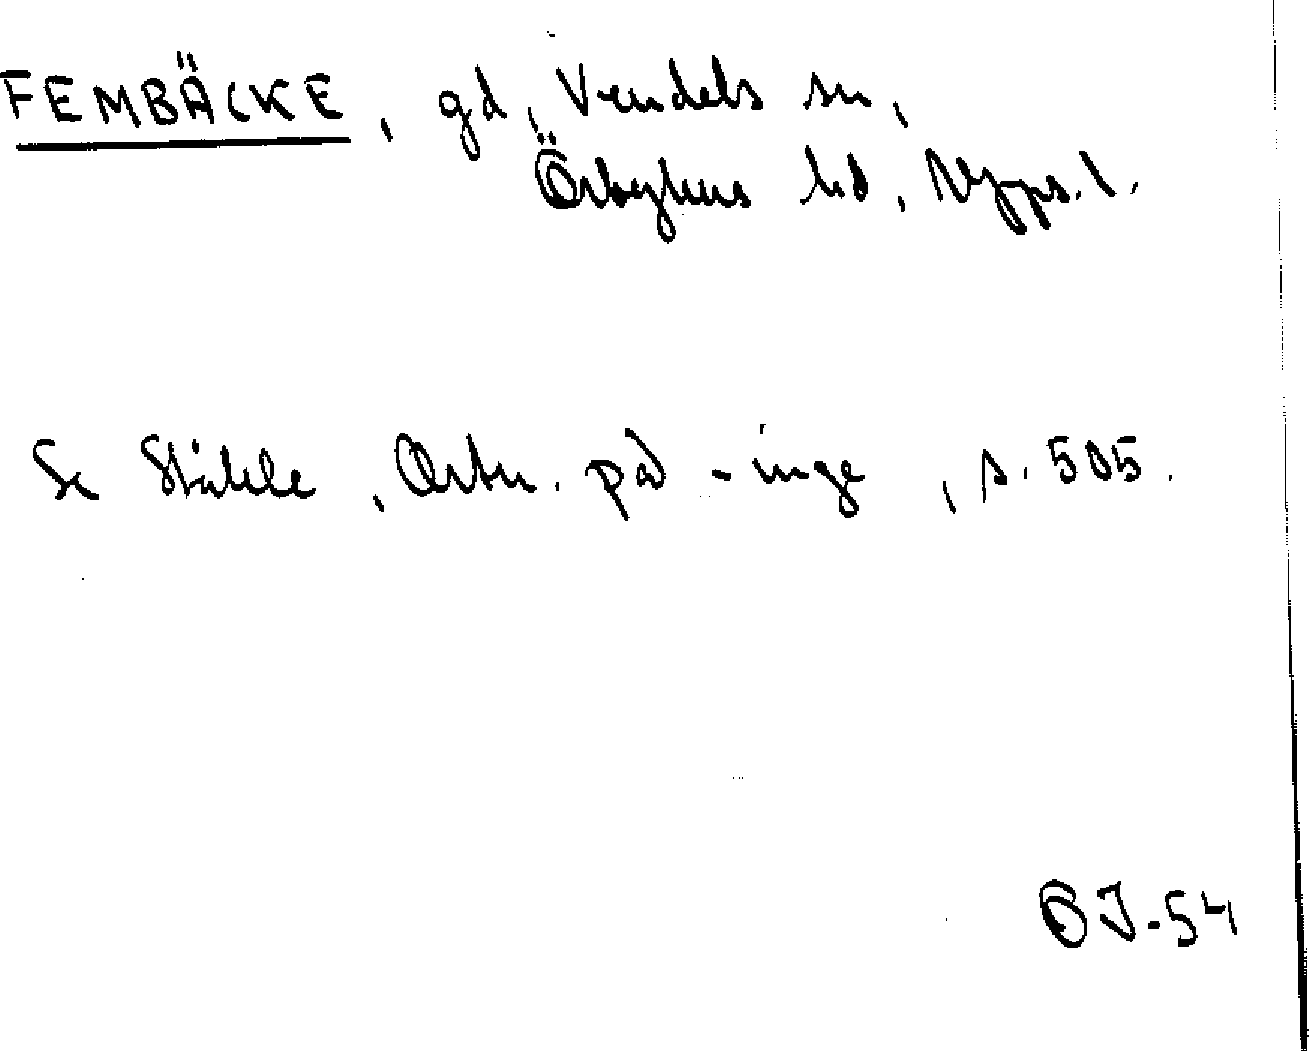 FEMBÄCKE, gd, Vendels sn,
Örbyhus hd, Upps. l.
Se Ståhle, Ortn. på -inge, s. 505.
ÖJ-54